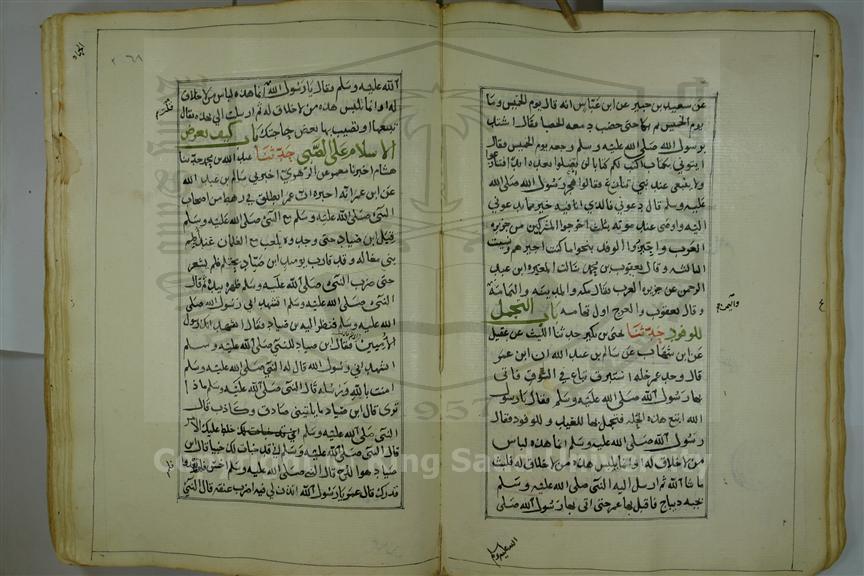 عن سعيد بن جبير عن ابن عباس انه قال يوم الخميس وما
يوم الخميس ثم بكا حتى خضب دمعه الحصبا فقال اشتد
برسول الله صلى الله عليه وسلم وجعه يوم الخميس فقال
ايتوني بكتاب اكتب لكم كتابا لن تضلوا بعده ابدا فتنازعوا
ولا ينبغي عند نبي تنازع فقالوا هجر رسول الله صلى الله
عليه وسلم قال دعوني فالذي انا فيه خير مما تدعوني
اليه واوصى عند موته بثلث اخرجوا المشركين من جزيرة
العرب واجيزوا الوفد بنحو ما كنت اجيزهم ونسيت
الثالثة وقال يعقوب بن محمد سالت المغيرة ابن عبد
الرحمن عن جزيرة العرب فقال مكة والمدينة واليمامة
وقال يعقوب والعرج اول تهامة باب التجمل
للوفود حدثنا يحيى بن بكير حدثنا الليث عن عقيل
عن ابن شهاب عن سالم بن عبد الله ان ابن عمر
قال وجد عمر حلة استبرق تباع في السوق فاتى
بها رسول الله صلى الله عليه وسلم فقال يا رسول
الله ابتع هذه الحلة فتجمل بها للعيد وللوفود فقال
رسول الله صلى الله عليه وسلم انما هذه لباس
من لا خلاق له او انما يلبس هذه من لا خلاق له فلبث
ما شا الله ثم ارسل اليه النبي صلى الله عليه وسلم
بجبة ديباج فاقبل بها عمر حتى اتى بها رسول الله صلى
واليمن
الله عليه وسلم
الله عليه وسلم فقال يا رسول الله انما هذه لباس من لا خلاق
له او انما يلبس هذه من لا خلاق له ثم ارسلت الي بهذه فقال
تبيعها او تصيب بها بعض حاجتك باب كيف يعرض
الاسلام على الصبي حدثنا عبد الله بن محمد حدثنا
هشام اخبرنا معمر عن الزهري اخبرني سالم بن عبد الله
عن ابن عمر انه اخبره ان عمر انطلق في رهط من اصحاب
النبي صلى الله عليه وسلم مع النبي صلى الله عليه وسلم
قبل ابن صياد حتى وجدوه يلعب مع الغلمان عند اطم
بني مغالة وقد قارب يومئذ ابن صياد يحتلم فلم يشعر
حتى ضرب النبي صلى الله عليه وسلم ظهره بيده ثم قال
النبي صلى الله عليه وسلم اتشهد اني رسول الله صلى
الله عليه وسلم فنظر اليه ابن صياد فقال اشهد انك رسول
الاميين فقال ابن صياد للنبي صلى الله عليه وسلم
اتشهد اني رسول الله قال له النبي صلى الله عليه وسلم
امنت بالله ورسله قال النبي صلى الله عليه وسلم ماذا
ترى قال ابن صياد ياتيني صادق وكاذب قال
النبي صلى الله عليه وسلم خلط عليك الامر
قال النبي صلى الله عليه وسلم اني قد خبات لك خبيا قال ابن
صياد هو الدخ قال النبي صلى الله عليه وسلم اخسا فلن تعدو
قدرك قال عمر يا رسول الله ائذن لي فيه اضرب عنقه قال النبي
1957
King Saud University